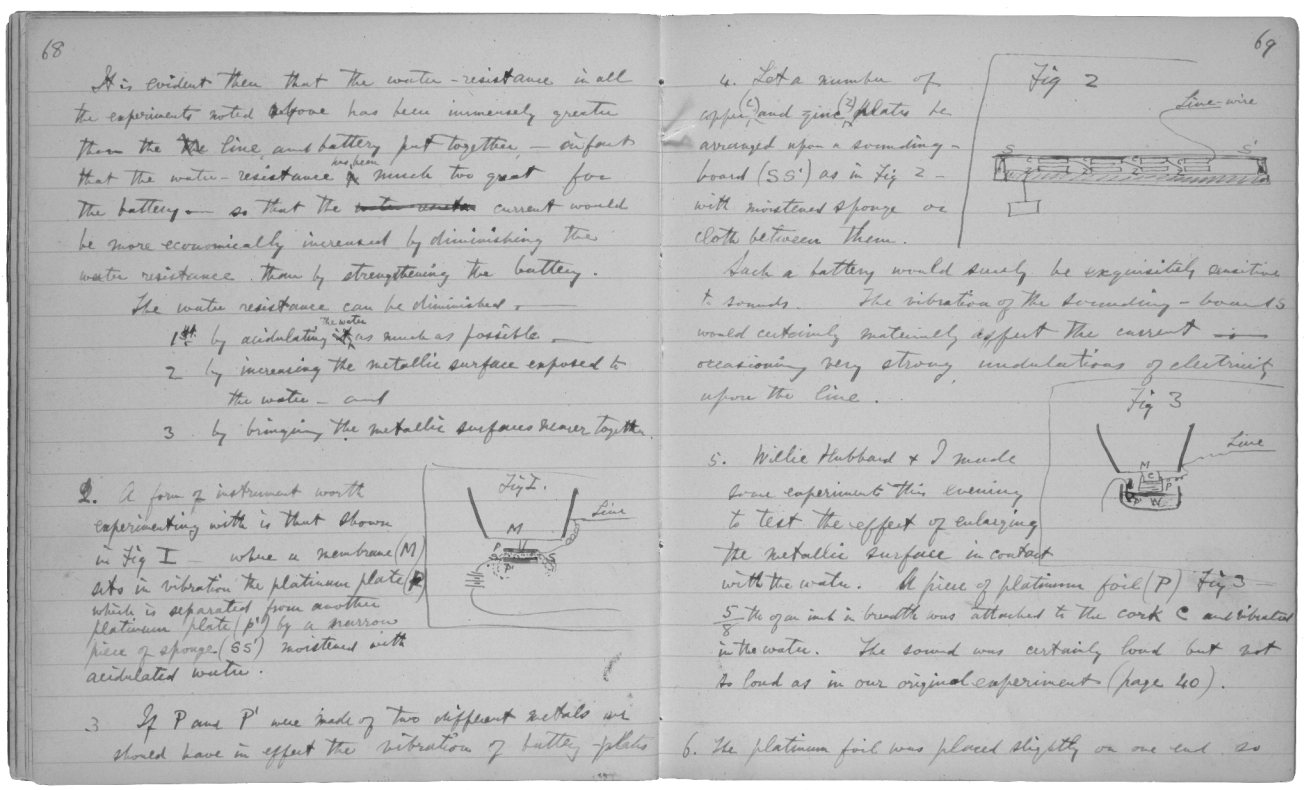 68
It is evident then that the water-resistance in all
the experiments noted above has been immensely greater
than the line and battery put together — in fact
that the water-resistance has been much too great for
the battery — so that the current would
be more economically increased by diminishing the
water resistance than by strengthening the battery.
The water resistance can be diminished. —
1st by acidulating the water as much as possible —
2 by increasing the metallic surface exposed to
the water — and
3 by bringing the metallic surfaces nearer together.
2. A form of instrument worth
experimenting with is that shown
in Fig I — where a membrane (M)
sets in vibration the platinum plate (P)
which is separated from another
platinum plate (P') by a narrow
piece of sponge (SS') moistened with
acidulated water.
Fig I.
Line
M
P
S
P'
3 If P and P' were made of two different metals we
should have in effect the vibration of battery-plates
69
4. Let a number of
copper (c) and zinc (z) plates be
arranged upon a sounding-
board (SS') as in Fig 2 —
with moistened sponge or
cloth between them.
Fig 2
Line-wire
S
S'
C C C C
Z Z Z Z
Such a battery would surely be exquisitely sensitive
to sounds. The vibration of the sounding-boards
would certainly materially affect the current —
occasioning very strong undulations of electricity
upon the line.
Fig 3
Line
M
C
P
P'
W
5. Willie Hubbard & I made
some experiments this evening
to test the effect of enlarging
the metallic surface in contact
with the water. A piece of platinum foil (P) Fig 3 —
5/8 th of an inch in breadth was attached to the cork C and vibrated
in the water. The sound was certainly loud but not
so loud as in our original experiment (page 40).
6. The platinum foil was placed slightly on one end so